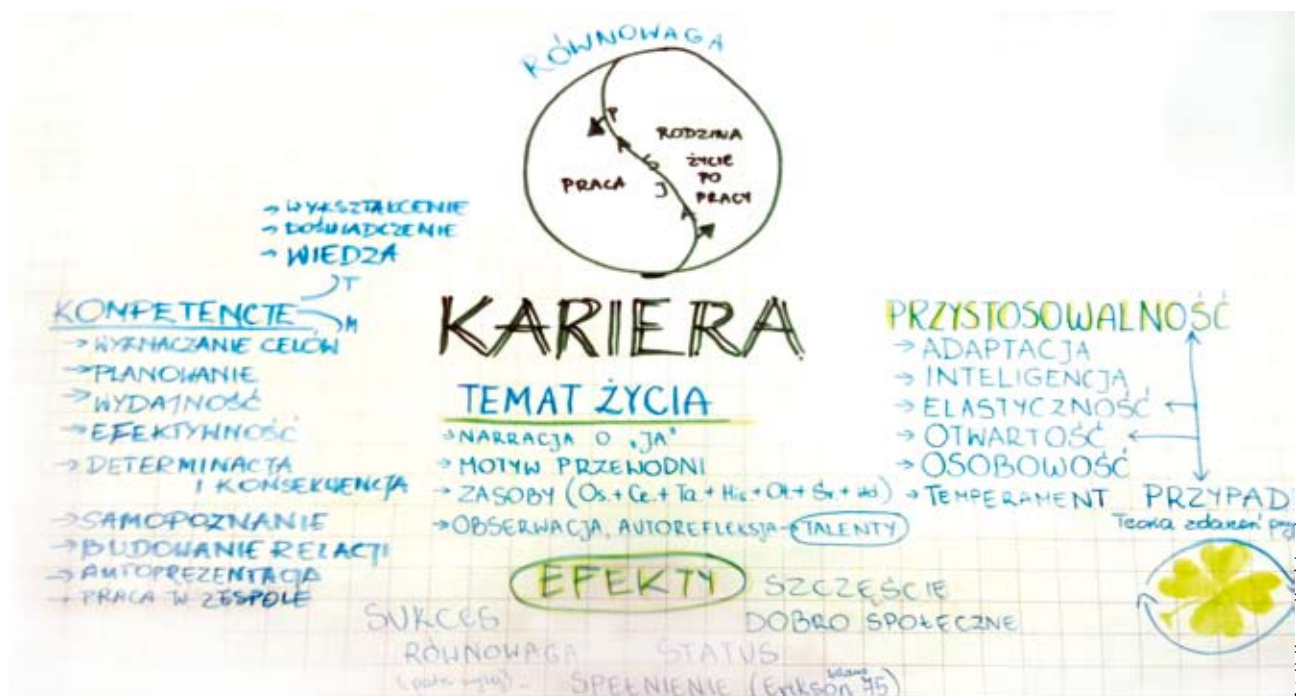 RÓWNOWAGA
PASJA
PRACA
RODZINA
ŻYCIE
PO
PRACY
→ WYKSZTAŁCENIE
→ DOŚWIADCZENIE
→ WIEDZA
T
KOMPETENCJE
M
→ WYZNACZANIE CELÓW
→ PLANOWANIE
→ WYDAJNOŚĆ
→ EFEKTYWNOŚĆ
→ DETERMINACJA
I KONSEKWENCJA
→ SAMOPOZNANIE
→ BUDOWANIE RELACJI
→ AUTOPREZENTACJA
→ PRACA W ZESPOLE
KARIERA
TEMAT ŻYCIA
→ NARRACJA O "JA"
→ MOTYW PRZEWODNI
→ ZASOBY (Os. + Ce. + Ta + His + Ot + Śr +
→ OBSERWACJA, AUTOREFLEKSJA → TALENTY
PRZYSTOSOWALNOŚĆ
→ ADAPTACJA
→ INTELIGENCJA
→ ELASTYCZNOŚĆ
→ OTWARTOŚĆ
→ OSOBOWOŚĆ
→ TEMPERAMENT
PRZYPAD
Teoria zdarzeń
EFEKTY
SZCZĘŚCIE
SUKCES
DOBRO SPOŁECZNE
RÓWNOWAGA
STATUS
SPEŁNIENIE (Erikson 75)